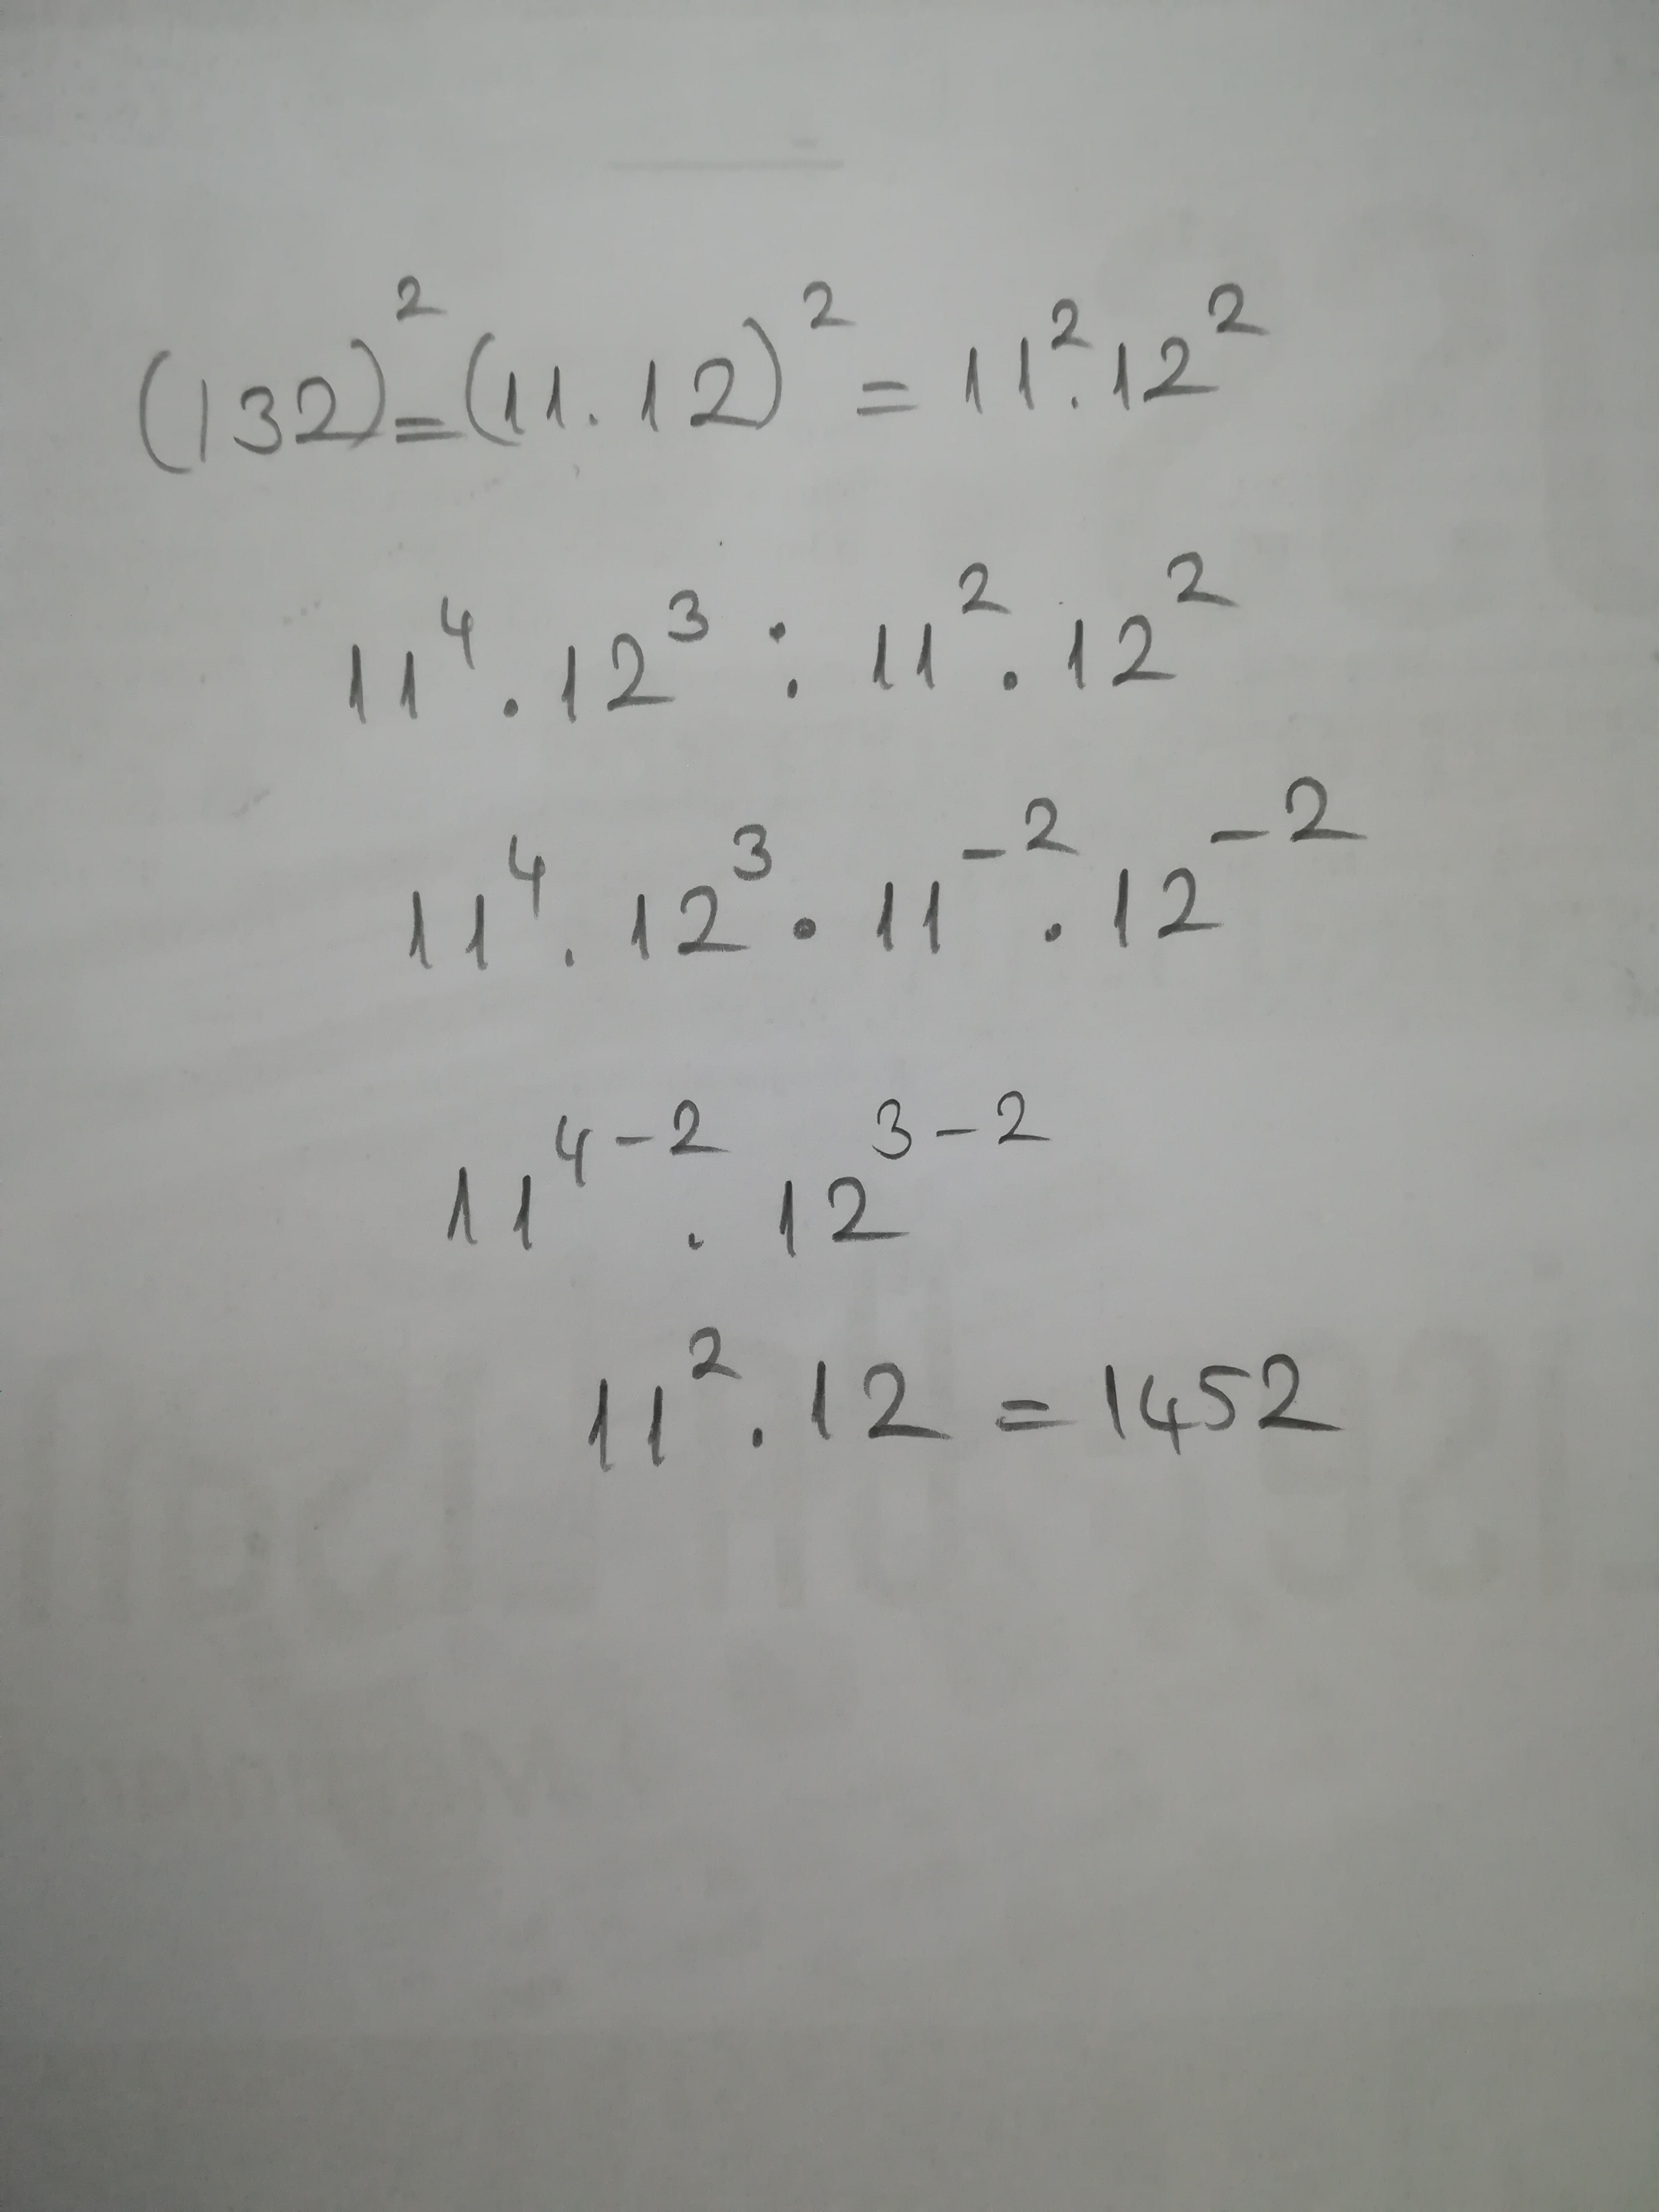 (132)² = (11 . 12)² = 11² . 12²
11⁴ . 12³ : 11² . 12²
11⁴ . 12³ . 11⁻² . 12⁻²
11⁴⁻² . 12³⁻²
11² . 12 = 1452